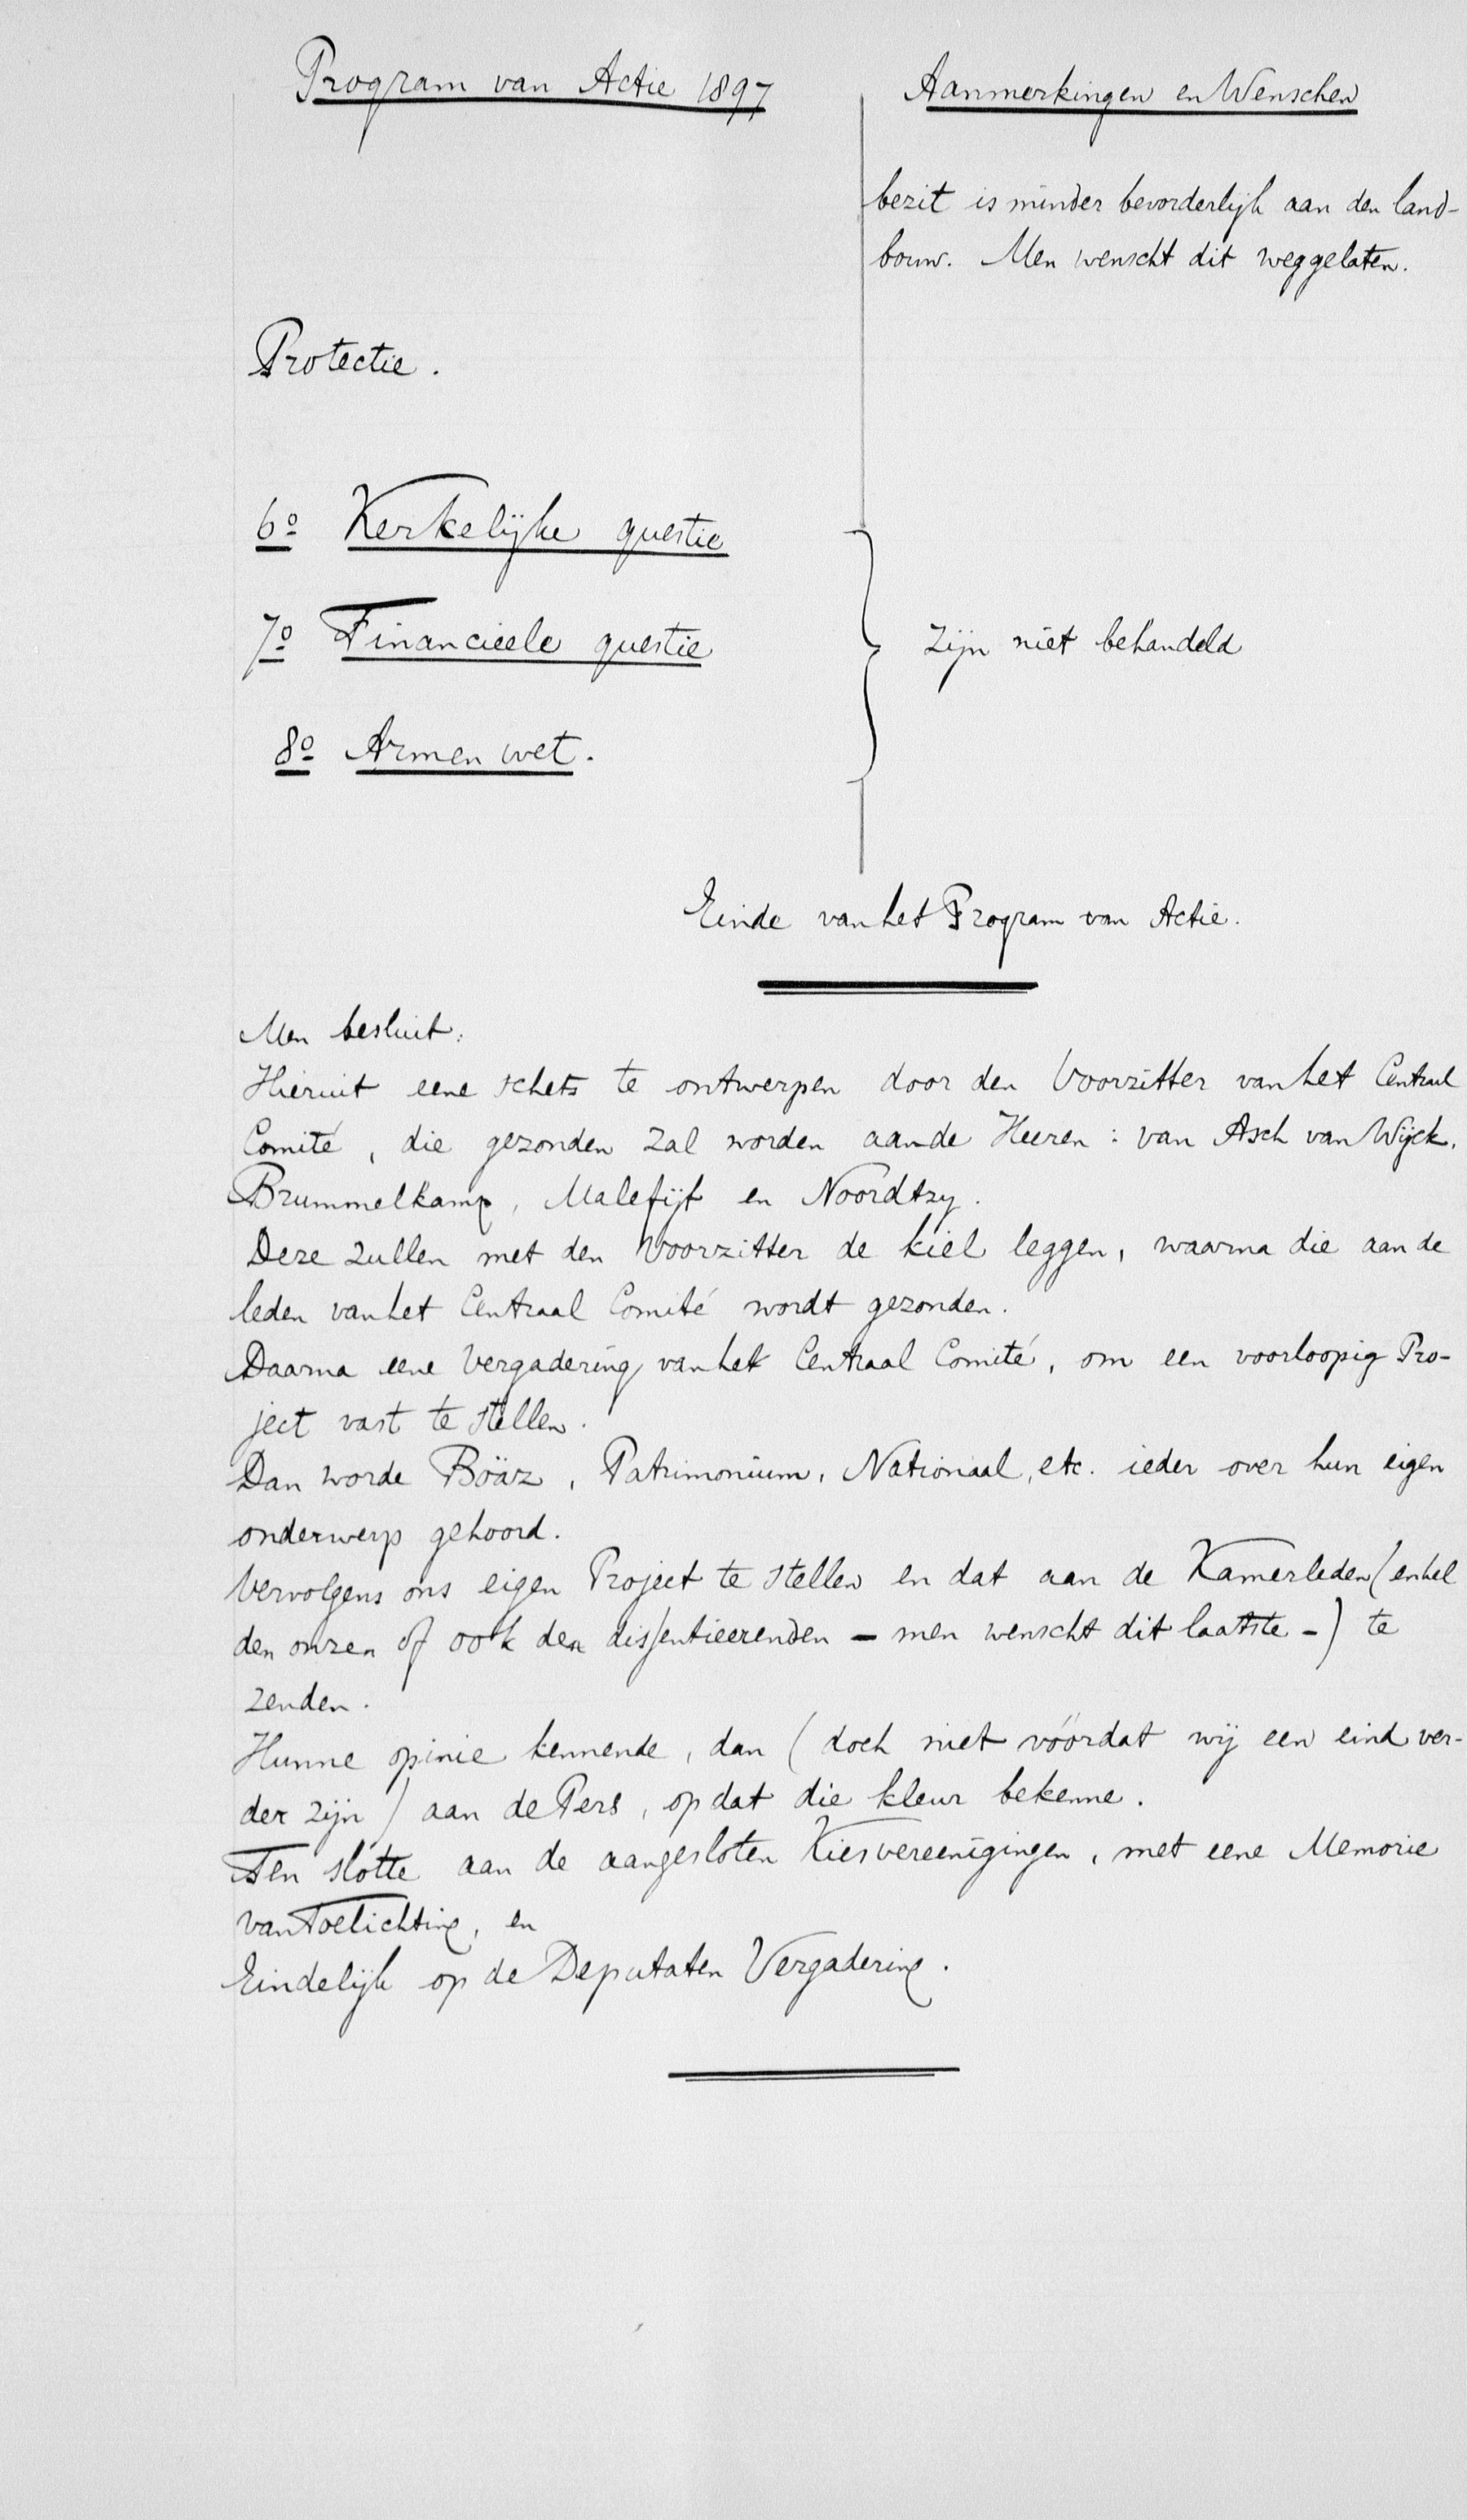 Program van Actie 1897
Aanmerkingen en Wenschen
bezit is minder bevorderlijk aan den land-
bouw. Men wenscht dit weggelaten.
Protectie.
6o Kerkelijke questie
7o Financieele questie
8o Armen wet.
Zijn niet behandeld
Einde van het Program van Actie.
Men besluit:
Hieruit eene schets te ontwerpen door den Voorzitter van het Centraal
Comité, die gezonden zal worden aan de Heeren: van Asch van Wijck,
Brummelkamp, Malefijt en Noordtzy.
Deze zullen met den Voorzitter de kiel leggen, waarna die aan de
leden van het Centraal Comité wordt gezonden.
Daarna eene Vergadering van het Centraal Comité, om een voorloopig Pro-
ject vast te stellen.
Dan worde Böäz, Patrimonium, Nationaal, etc. ieder over hun eigen
onderwerp gehoord.
Vervolgens ons eigen Project te stellen en dat aan de Kamerleden (enkel
den onzen of ook den dissentieerenden - men wenscht dit laatste -) te
zenden.
Hunne opinie kennende, dan (doch niet vóórdat wij een eind ver-
der zijn) aan de Pers, opdat die kleur bekenne.
Ten slotte aan de aangesloten Kiesvereenigingen, met eene Memorie
van Toelichting, en
Eindelijk op de Deputaten Vergadering.